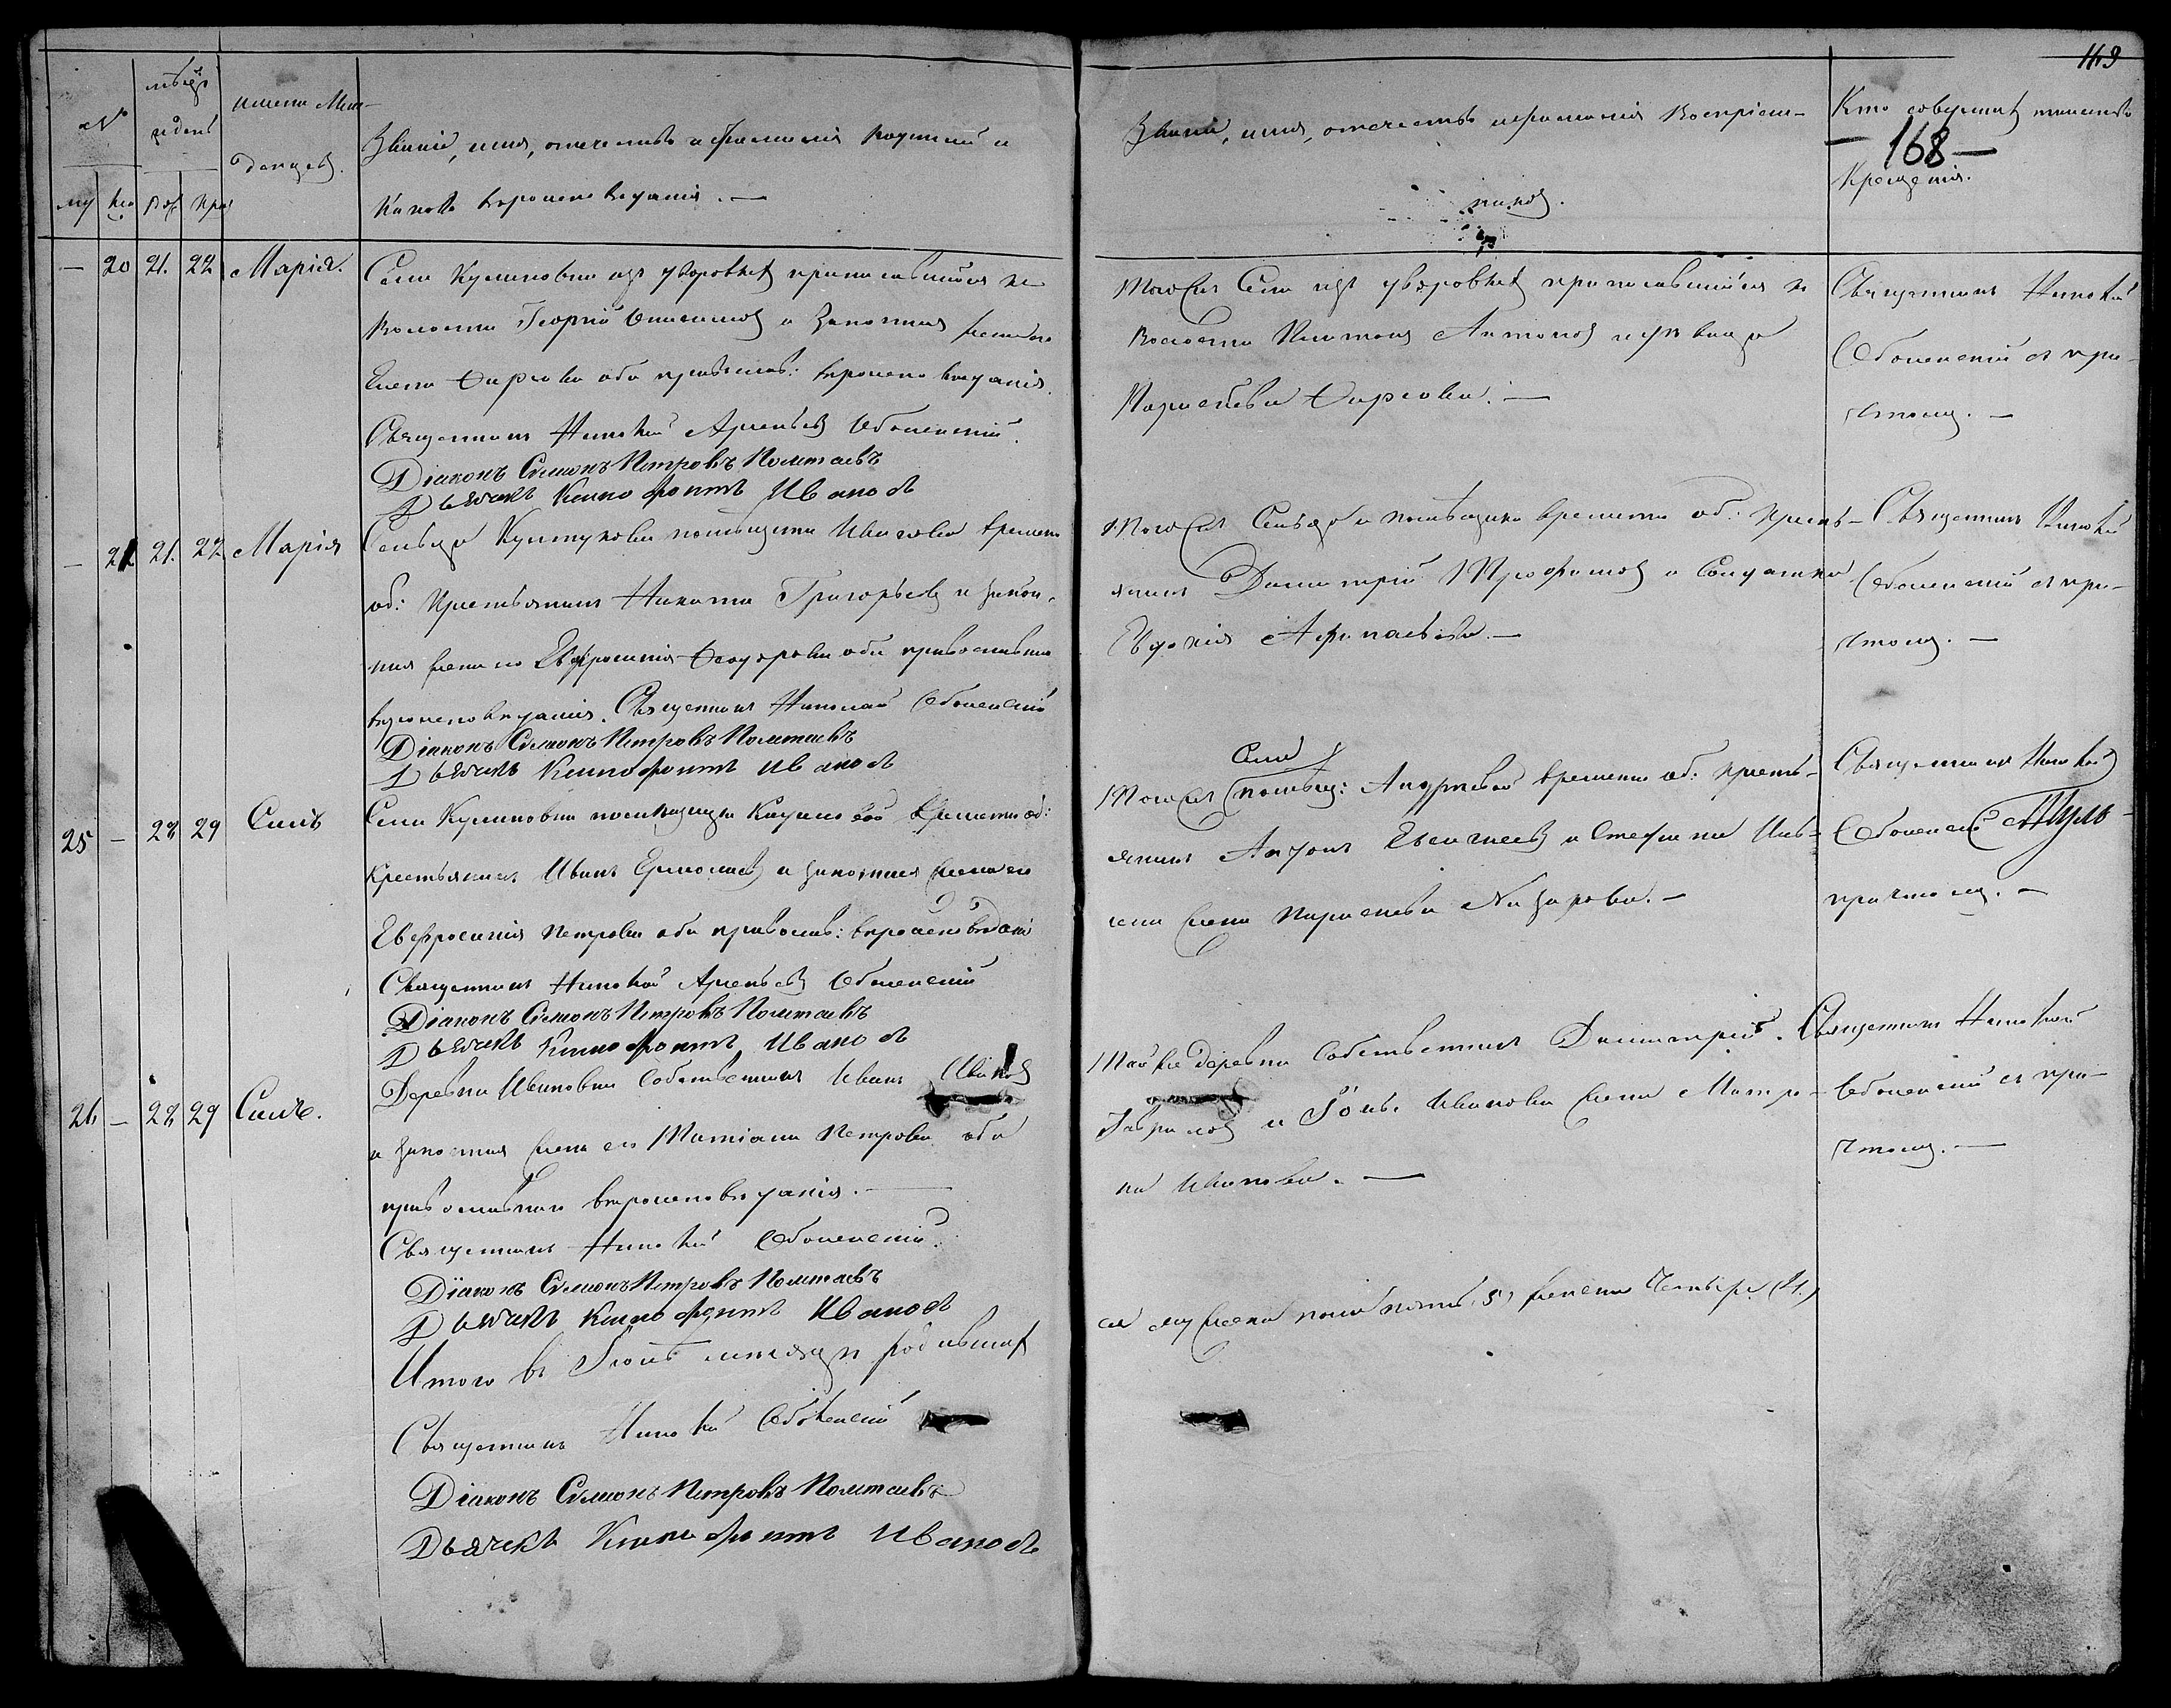 169
№
мѣсяцъ
и день
имена Мла-
денцевъ.
Званіе, имя, отечество и фамилія родителей и
какого вѣроисповѣданія. —
му
же
Рож
Крещ
Званіе, имя, отечество и фамилія Воспріем-
никовъ.
Кто совершилъ таинство
— 168 —
Крещенія.
— 20 21. 22 Марія.
Села из дворовыхъ приписавшійся къ
Волости Георгій и Законная жена его
Елена Фирсова оба правосл: вѣроисповѣданія.
Священникъ Николай Арсеньевъ Оболенскій.
Діаконъ Симеонъ Петровъ Полетаевъ
Дьячекъ Ксенофонтъ Ивановъ
Тогоже Села изъ дворовыхъ приписавшійся къ
Волости Платонъ Антоновъ и дѣвица
Параскева Фирсова. —
Священникъ Николай
Оболенскій съ при-
чтомъ. —
— 21 21. 22 Марія
Сельца помѣщика Ивановa временно
об: Крестьянинъ Никита Григорьевъ и закон-
ная жена его Евфросинія Феодорова оба православнаго
вѣроисповѣданія. Священникъ Николай Оболенскій
Діаконъ Симеонъ Петровъ Полетаевъ
Дьячекъ Ксенофонтъ Ивановъ
Тогоже Сельца и помѣщика временно об: Кресть-
янинъ Димитрій Трофимовъ и Солдатка
Евдокія Афанасьева. —
Священникъ Николай
Оболенскій съ при-
чтомъ. —
25 — 28 29 Симъ
Села помѣщицы временно об:
Крестьянинъ Иванъ Ермолаевъ и законная жена его
Евфросинія Петрова оба правосл: вѣроисповѣданія
Священникъ Николай Арсеньевъ Оболенскій
Діаконъ Симеонъ Петровъ Полетаевъ
Дьячекъ Ксенофонтъ Ивановъ
Села
Тогоже помѣщ: Андреевой временно об: Кресть-
янинъ Антонъ Евсигнеевъ и
жена Параскева Назарова. —
Священникъ Николай
Оболенскій
причтомъ. —
26 — 28 29 Симъ.
Деревни Ивановки Собственникъ Иванъ Ивановъ
и законная жена его Татіана Петрова оба
православнаго вѣроисповѣданія. —
Священникъ Николай Оболенскій.
Діаконъ Симеонъ Петровъ Полетаевъ
Дьячекъ Ксенофонтъ Ивановъ
Тойже деревни Собственникъ Димитрій
Гавриловъ и Ивановa жена Матро-
на Иванова. —
Священникъ Николай
Оболенскій съ при-
чтомъ. —
Итого въ Іюнѣ мѣсяцѣ родивших
ся мужеска пола пять (5) женска четыре (4.)
Священникъ Николай Оболенскій
Діаконъ Симеонъ Петровъ Полетаевъ
Дьячекъ Ксенофонтъ Ивановъ